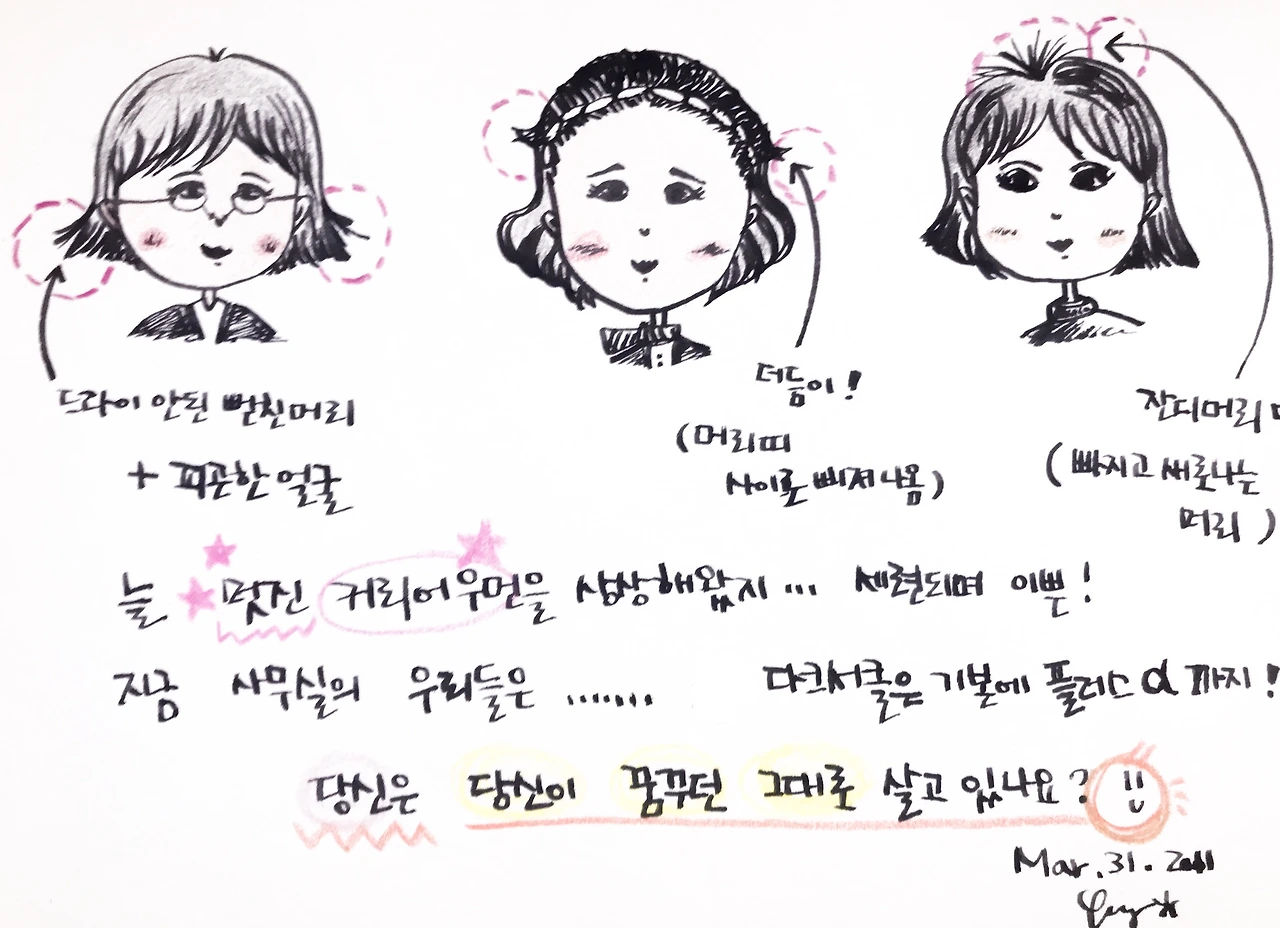 드라이 안된 뻗친머리
+ 피곤한 얼굴
더듬이!
(머리띠
사이로 삐져나옴)
잔디머리
(빠지고 새로나는
머리)
늘 멋진 커리어우먼을 상상해왔지... 세련되며 이쁜!
지금 사무실의 우리들은 ....... 다크서클은 기본에 플러스 α 까지!
당신은 당신이 꿈꾸던 그대로 살고 있나요?
Mar.31.2011